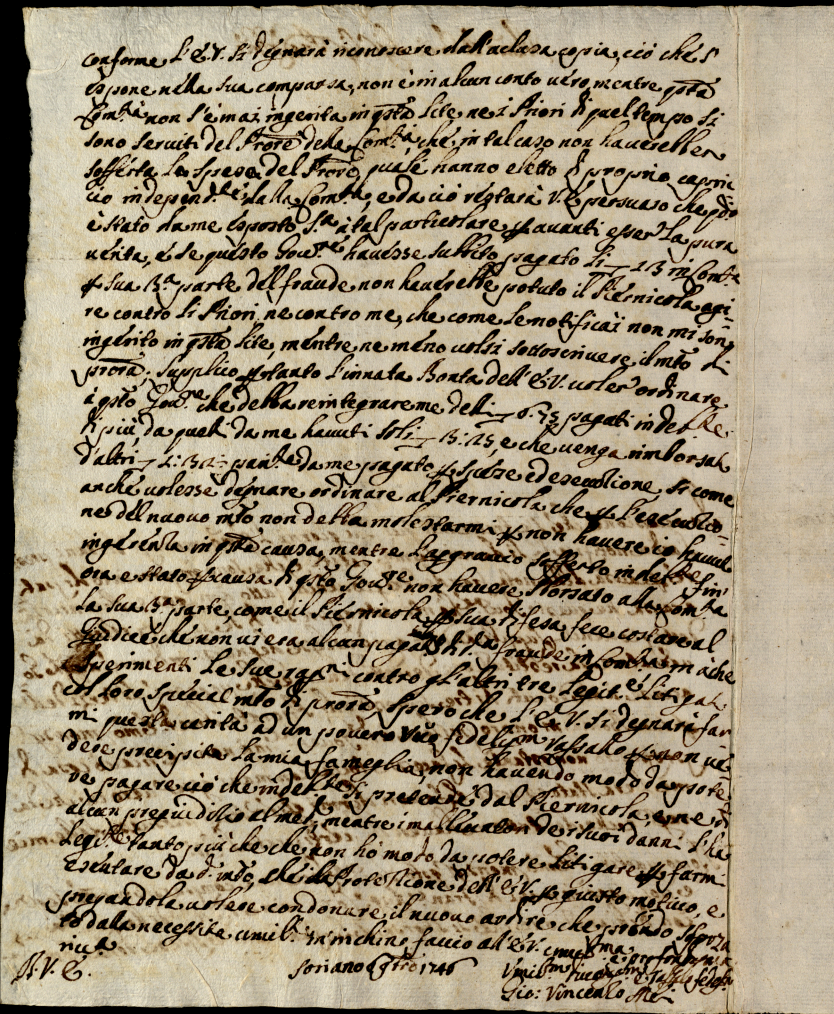 conforme l'E.V. si degnarà riconoscere dall'aclusa copia, ciò che s'
espone nella sua comparsa, non è in alcun conto vero, mentre qsta
Com.tà non s'è mai ingerita in qsta lite, ne i Priori di quel tempo si
sono serviti del Prore della Com.tà, che in tal caso non haverebbero
sofferta la spesa del Prore, quale hanno eletto di proprio capric
cio independ.te dalla Com.tà, e da ciò restarà V.E. persuaso che qto
è stato da me esposto s.a a tal particolare p avanti esser la pura
verita, e se questo Gov.re havesse subbito pagato li 13 in Com.tà
p sua 3.a parte del fraude non haverebbe potuto il Piernicola agi=
re contro li Priori, ne contro me, che come le notificai non mi son
ingerito in qsta lite, mentre ne meno volsi sottoscrivere il mto di
prora; supplico ptanto l'innata Bontà dell'E.V. voler ordinare
a qsto Gov.re che debba reintegrare me delli 6:75 pagati
di più, da quelli da me havuti soli 3:25, e che venga rimborsato
d'altri 2:32: da me pagato p spese ed esecutione, si come
anche volesse degnare ordinare al Piernicola che p l'esecutio=
ne del nuovo mto non debba molestarmi p non havere io havut
ingerenza in qsta causa, mentre l'aggravio sofferto fin'
ora è stato p causa di qsto Gov.re non havere sborsato alla Com.tà
la sua 3.a parte, come il Piernicola p sua difesa fece costare al
Giudice che non vi era alcun pagato di d.a fraude in Com.tà, ma che
sperimenti le sue ragni contro gl'altri tre
col loro special mto di prora. Spero che l'E.V. si degnarà far
mi questa carità ad un povero suo fedeliss.m Vassallo p non ve
dere precipitata la mia fameglia, non havendo modo da pote
re pagare ciò che si pretende dal Piernicola, e ne di
alcun pregiuditio al med.o, mentre i danni l'ha
tanto più che che non ho modo da potere litigare p farmi
esentare da d. mto, che la Protettione dell'E.V. p giusto motivo, e
pregandola volere condonare il nuovo ardire che prendo sforza
to dalla necessità umil.te m'inchino faccio all'E.V. profondissima
riv.a
D. V. E. Soriano 6 1746
Umil.mo
Gio: Vincenzo